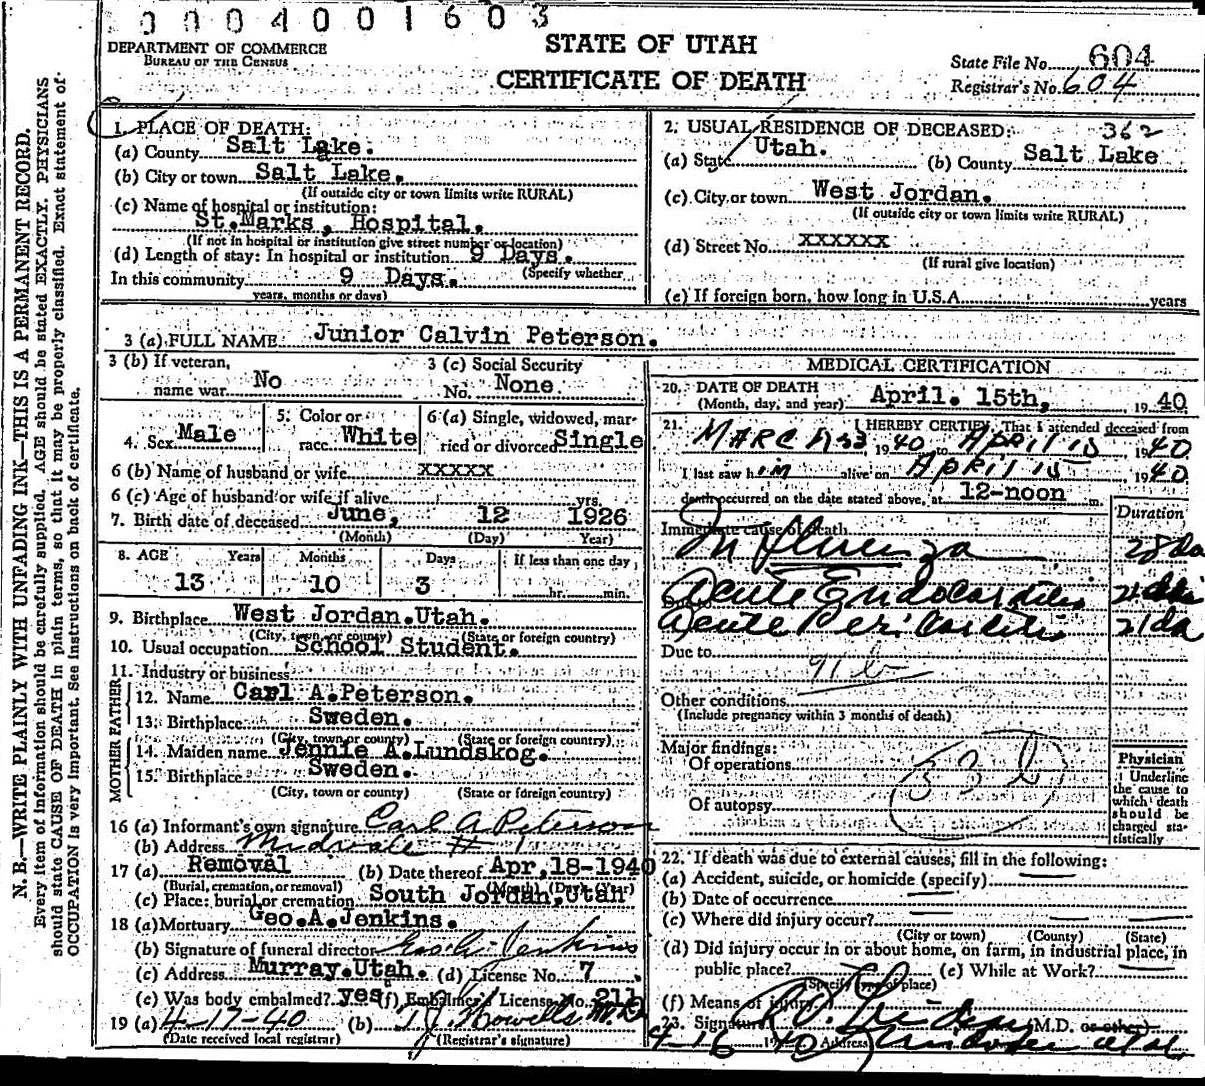 0004001603
DEPARTMENT OF COMMERCE
BUREAU OF THE CENSUS
STATE OF UTAH
CERTIFICATE OF DEATH
State File No. 604
Registrar's No. 604
N. B.—WRITE PLAINLY WITH UNFADING INK—THIS IS A PERMANENT RECORD.
Every item of information should be carefully supplied. AGE should be stated EXACTLY. PHYSICIANS
should state CAUSE OF DEATH in plain terms, so that it may be properly classified. Exact statement of
OCCUPATION is very important. See instructions on back of certificate.
1. PLACE OF DEATH:
(a) County Salt Lake.
(b) City or town Salt Lake.
(If outside city or town limits write RURAL)
(c) Name of hospital or institution:
St.Marks, Hospital.
(If not in hospital or institution give street number or location)
(d) Length of stay: In hospital or institution 9 Days.
(Specify whether
In this community 9 Days.
years, months or days)
2. USUAL RESIDENCE OF DECEASED: 362
(a) State Utah. (b) County Salt Lake
(c) City or town West Jordan.
(If outside city or town limits write RURAL)
(d) Street No. XXXXXX
(If rural give location)
(e) If foreign born, how long in U.S.A. years
3 (a) FULL NAME Junior Calvin Peterson.
3 (b) If veteran,
name war No
3 (c) Social Security
No. None
4. Sex Male
5. Color or
race White
6 (a) Single, widowed, mar-
ried or divorced Single
6 (b) Name of husband or wife XXXXX
6 (c) Age of husband or wife if alive yrs.
7. Birth date of deceased June, 12 1926
(Month) (Day) Year)
8. AGE Years Months Days If less than one day
13 10 3 hr. min.
9. Birthplace West Jordan.Utah.
(City, town, or county) (State or foreign country)
10. Usual occupation School Student.
11. Industry or business
FATHER
12. Name Carl A.Peterson.
13. Birthplace Sweden.
(City, town or county) (State or foreign country)
MOTHER
14. Maiden name Jennie A.Lundskog.
15. Birthplace Sweden.
(City, town or county) (State or foreign country)
16 (a) Informant's own signature Carl A Peterson
(b) Address Midvale # 1
17 (a) Removal (b) Date thereof Apr,18-1940
(Burial, cremation, or removal) (Month) (Day) (Year)
(c) Place: burial or cremation South Jordan,Utah
18 (a) Mortuary Geo.A.Jenkins.
(b) Signature of funeral director Geo. A. Jenkins
(c) Address Murray.Utah. (d) License No. 7
(e) Was body embalmed? yes (f) Embalmer's License No. 211
19 (a) 4-17-40 (b) T J Howells M.D
(Date received local registrar) (Registrar's signature)
MEDICAL CERTIFICATION
20. DATE OF DEATH
(Month, day, and year) April. 15th, 19 40
21. I HEREBY CERTIFY, That I attended deceased from
March 23, 19 40 to April 15 19 40
I last saw him alive on April 15 19 40
death occurred on the date stated above, at 12-noon m.
Duration
Immediate cause of death
Influenza 28 da
Due to Acute Endocarditis 21 da
Acute Pericarditis 21 da
Due to
91b
Other conditions
(Include pregnancy within 3 months of death)
Major findings:
Of operations
33b
Of autopsy
Physician
Underline
the cause to
which death
should be
charged sta-
tistically
22. If death was due to external causes, fill in the following:
(a) Accident, suicide, or homicide (specify)
(b) Date of occurrence
(c) Where did injury occur?
(City or town) (County) (State)
(d) Did injury occur in or about home, on farm, in industrial place, in
public place? (e) While at Work?
(Specify type of place)
(f) Means of injury
23. Signature M.D. or other)
4-16 1940 Address Utah